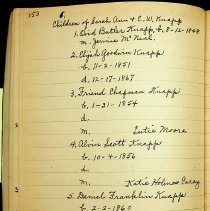 153
Children of Sarah Ann & C. W. Knapp
1. Ovid Butler Knapp, b. 8-12-1848
m. Jennie McNeal.
2. Elijah Goodwin Knapp
b. 11-2-1851
d. 12-17-1867
3. Friend Chapman Knapp
b. 1-31-1854
d.
m. Lutie Moore
4. Alvin Scott Knapp
b. 10-4-1856
d.
m. Katie Holmes Carey
5. Daniel Franklin Knapp
b. 2-2-1860